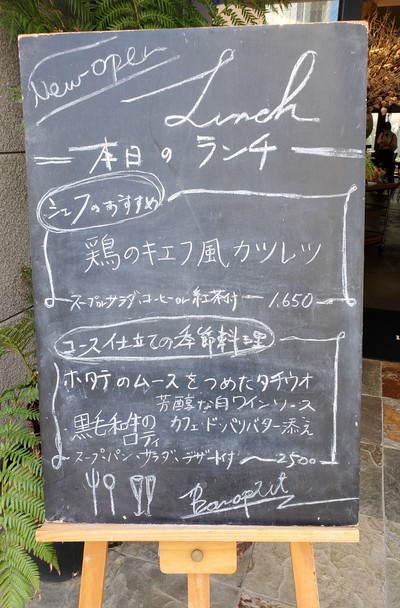 New open
Lunch
本日のランチ
シェフのおすすめ
鶏のキエフ風カツレツ
スープorサラダ、コーヒーor紅茶付 1,650
コース仕立ての季節料理
ホタテのムースをつめたタチウオ
芳醇な白ワインソース
黒毛和牛の
ロティ
カフェ・ド・パリバター添え
スープ・パン・サラダ、デザート付 2500